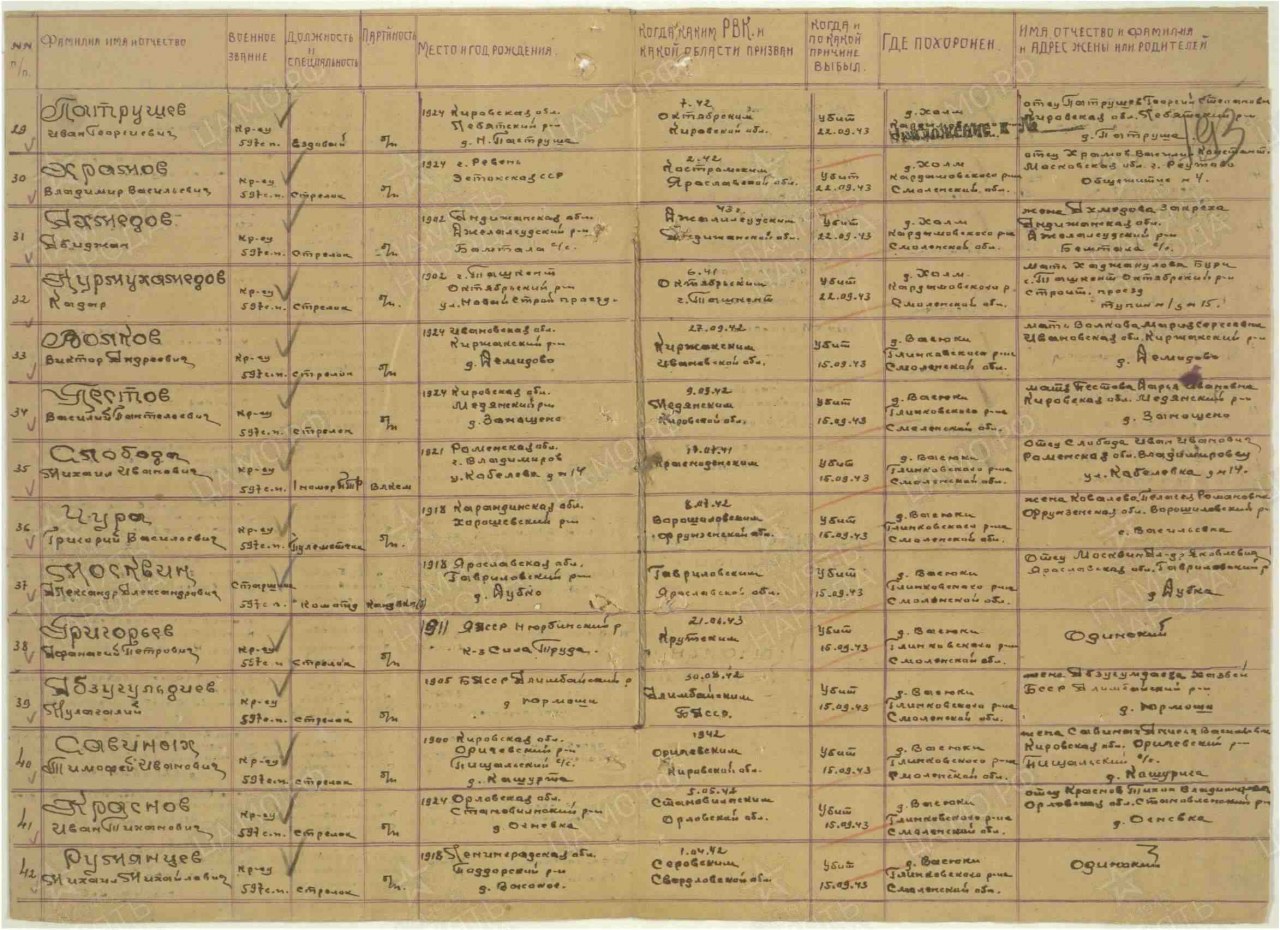 NN п/п.
ФАМИЛИЯ ИМЯ И ОТЧЕСТВО
ВОЕННОЕ ЗВАНИЕ
ДОЛЖНОСТЬ И СПЕЦИАЛЬНОСТЬ
ПАРТИЙНОСТЬ
МЕСТО И ГОД РОЖДЕНИЯ.
КОГДА КАКИМ РВК. И КАКОЙ ОБЛАСТИ ПРИЗВАН
КОГДА И ПО КАКОЙ ПРИЧИНЕ ВЫБЫЛ.
ГДЕ ПОХОРОНЕН.
ИМЯ ОТЧЕСТВО И ФАМИЛИЯ И АДРЕС ЖЕНЫ ИЛИ РОДИТЕЛЕЙ
193
29 Патрушев Иван Георгиевич Кр-ец 597с.п. Ездовый б/п 1924 Кировская обл. Лебяжский р-н д. Н. Патруша 7.42 Октябрским Кировской обл. Убит 22.09.43 д. Холм отец Патрушев Георгий Степанович Кировская обл. д. Патруша
30 Храмов Владимир Васильевич Кр-ец 597с.п. Стрелок б/п 1924 г. Ревень Эстонская ССР 2.42 Костромским Ярославской обл. Убит 22.09.43 д. Холм Кардымовского р-на Смоленской обл. отец Храмов Василий Московская обл. г. Реутово Общежитие н 4.
31 Ахмедов Абиджан Кр-ец 597с.п. Стрелок б/п 1902 Андижанская обл. Джелалеудский р-н Бамтала с/с. 43г. Джалилеудским Андижанской обл. Убит 22.09.43 д. Холм Кардымовского р-на Смоленской обл. жена Ахмедова Андижанская обл. Джелалеудский р-н Бештала с/с.
32 Нурмухамедов Кадар Кр-ец 597с.п. Стрелок б/п. 1902 г. Ташкент Октябрьский р-н ул. Новый Строй проезд. 6.41 Октябрьским г. Ташкент Убит 22.09.43 д. Холм Кардымовского р. Смоленской обл. мать Хаджакулова Бури г. Ташкент Октябрьский р-н Строит. проезд тупик н/1 д н 15.
33 Волков Виктор Андреевич Кр-ец 597с.п. Стрелок б/п 1924 Ивановская обл. Киржакский р-н д. Демидово 27.09.42 Киржакским Ивановской обл. Убит 15.09.43 д. Васюки Глинковского р-на Смоленской обл. мать Волкова Мария Сергеевна Ивановская обл. Киржакский р-н д. Демидово
34 Пестов Василий Пантелеевич Кр-ец 597с.п. Стрелок б/п 1924 Кировская обл. Медянский р-н д. Занощено 9.09.42 Медянским Кировской обл. Убит 15.09.43 д. Васюки Глинковского р-на Смоленской обл. мать Пестова Дарья Ивановна Кировская обл. Медянский р-н д. Занощено
35 Слобода Михаил Иванович Кр-ец 597с.п. 1 номер ПТР Влксм 1921 Раменская обл. г. Владимиров ул. Кабелева д н 14 Краснодонским Убит 15.09.43 д. Васюки Глинковского р-на Смоленской обл. отец Слобода Иван Иванович Раменская обл. Владимировец ул. Кабелевка д н 14.
36 Чура Григорий Васильевич Кр-ец 597с.п. Пулеметчик б/п. 1918 Карандинская обл. Хорошевский р-н 8.07.42 Ворошиловским Фрунзенской обл. Убит 15.09.43 д. Васюки Глинковского р-на Смоленской обл. жена Ковалева Пелагея Романовна Фрунзенская обл. Ворошиловский р-н с. Васильевка
37 Москвин Александр Александрович Старшина 597с.п. Комотд Канд. 1918 Ярославская обл. Гавриловский р-н д. Дубко Гавриловским Ярославской обл. Убит 15.09.43 д. Васюки Глинковского р-на Смоленской обл. Отец Москвин Ал-др Яковлевич Ярославская обл. Гавриловский р. д. Дубка
38 Григорьев Афанасий Петрович Кр-ец 597с.п. Стрелок б/п 1911 ЯАССР Нюрбинский р к-з Сила Труда. 21.06.43 Крутским Убит 15.09.43 д. Васюки Глинковского р-на Смоленской обл. Одинокий
39 Абзугульдиев Мулагалий Кр-ец 597с.п. Стрелок б/п 1905 БАССР Алимбайский р д Юрмаша Алимбайским БАССР. Убит 15.09.43 д. Васюки Глинковского р-на Смоленской обл. жена БССР Алимбайский р-н д. Юрмаша
40 Савиных Тимофей Иванович Кр-ец 597с.п. Стрелок б/п 1900 Кировская обл. Оричевский р-н Пищальский с/с. д. Кашурта 1942 Оричевским Кировской обл. Убит 15.09.43 д. Васюки Глинковского р-на Смоленской обл. жена Савиных Анисья Васильевна Кировская обл. Оричевский р-н Пищальский с/с. д. Кашурича
41 Краснов Иван Тиханович Кр-ец 597с.п. Стрелок б/п 1924 Орловская обл. Становлянский р-н д. Огневка 5.05.42 Становлянским Орловской обл. Убит 15.09.43 д. Васюки Глинковского р-на Смоленской обл. отец Краснов Тихон Владимирович Орловская обл. Становлянский р-н д. Огневка
42 Румянцев Михаил Михайлович Кр-ец 597с.п. Стрелок б/п. 1918 Ленинградская обл. Поддорский р-н д. Высокое. 1.04.42 Серовским Свердловской обл. Убит 15.09.43 д. Васюки Глинковского р-на Смоленской обл. Одинокий